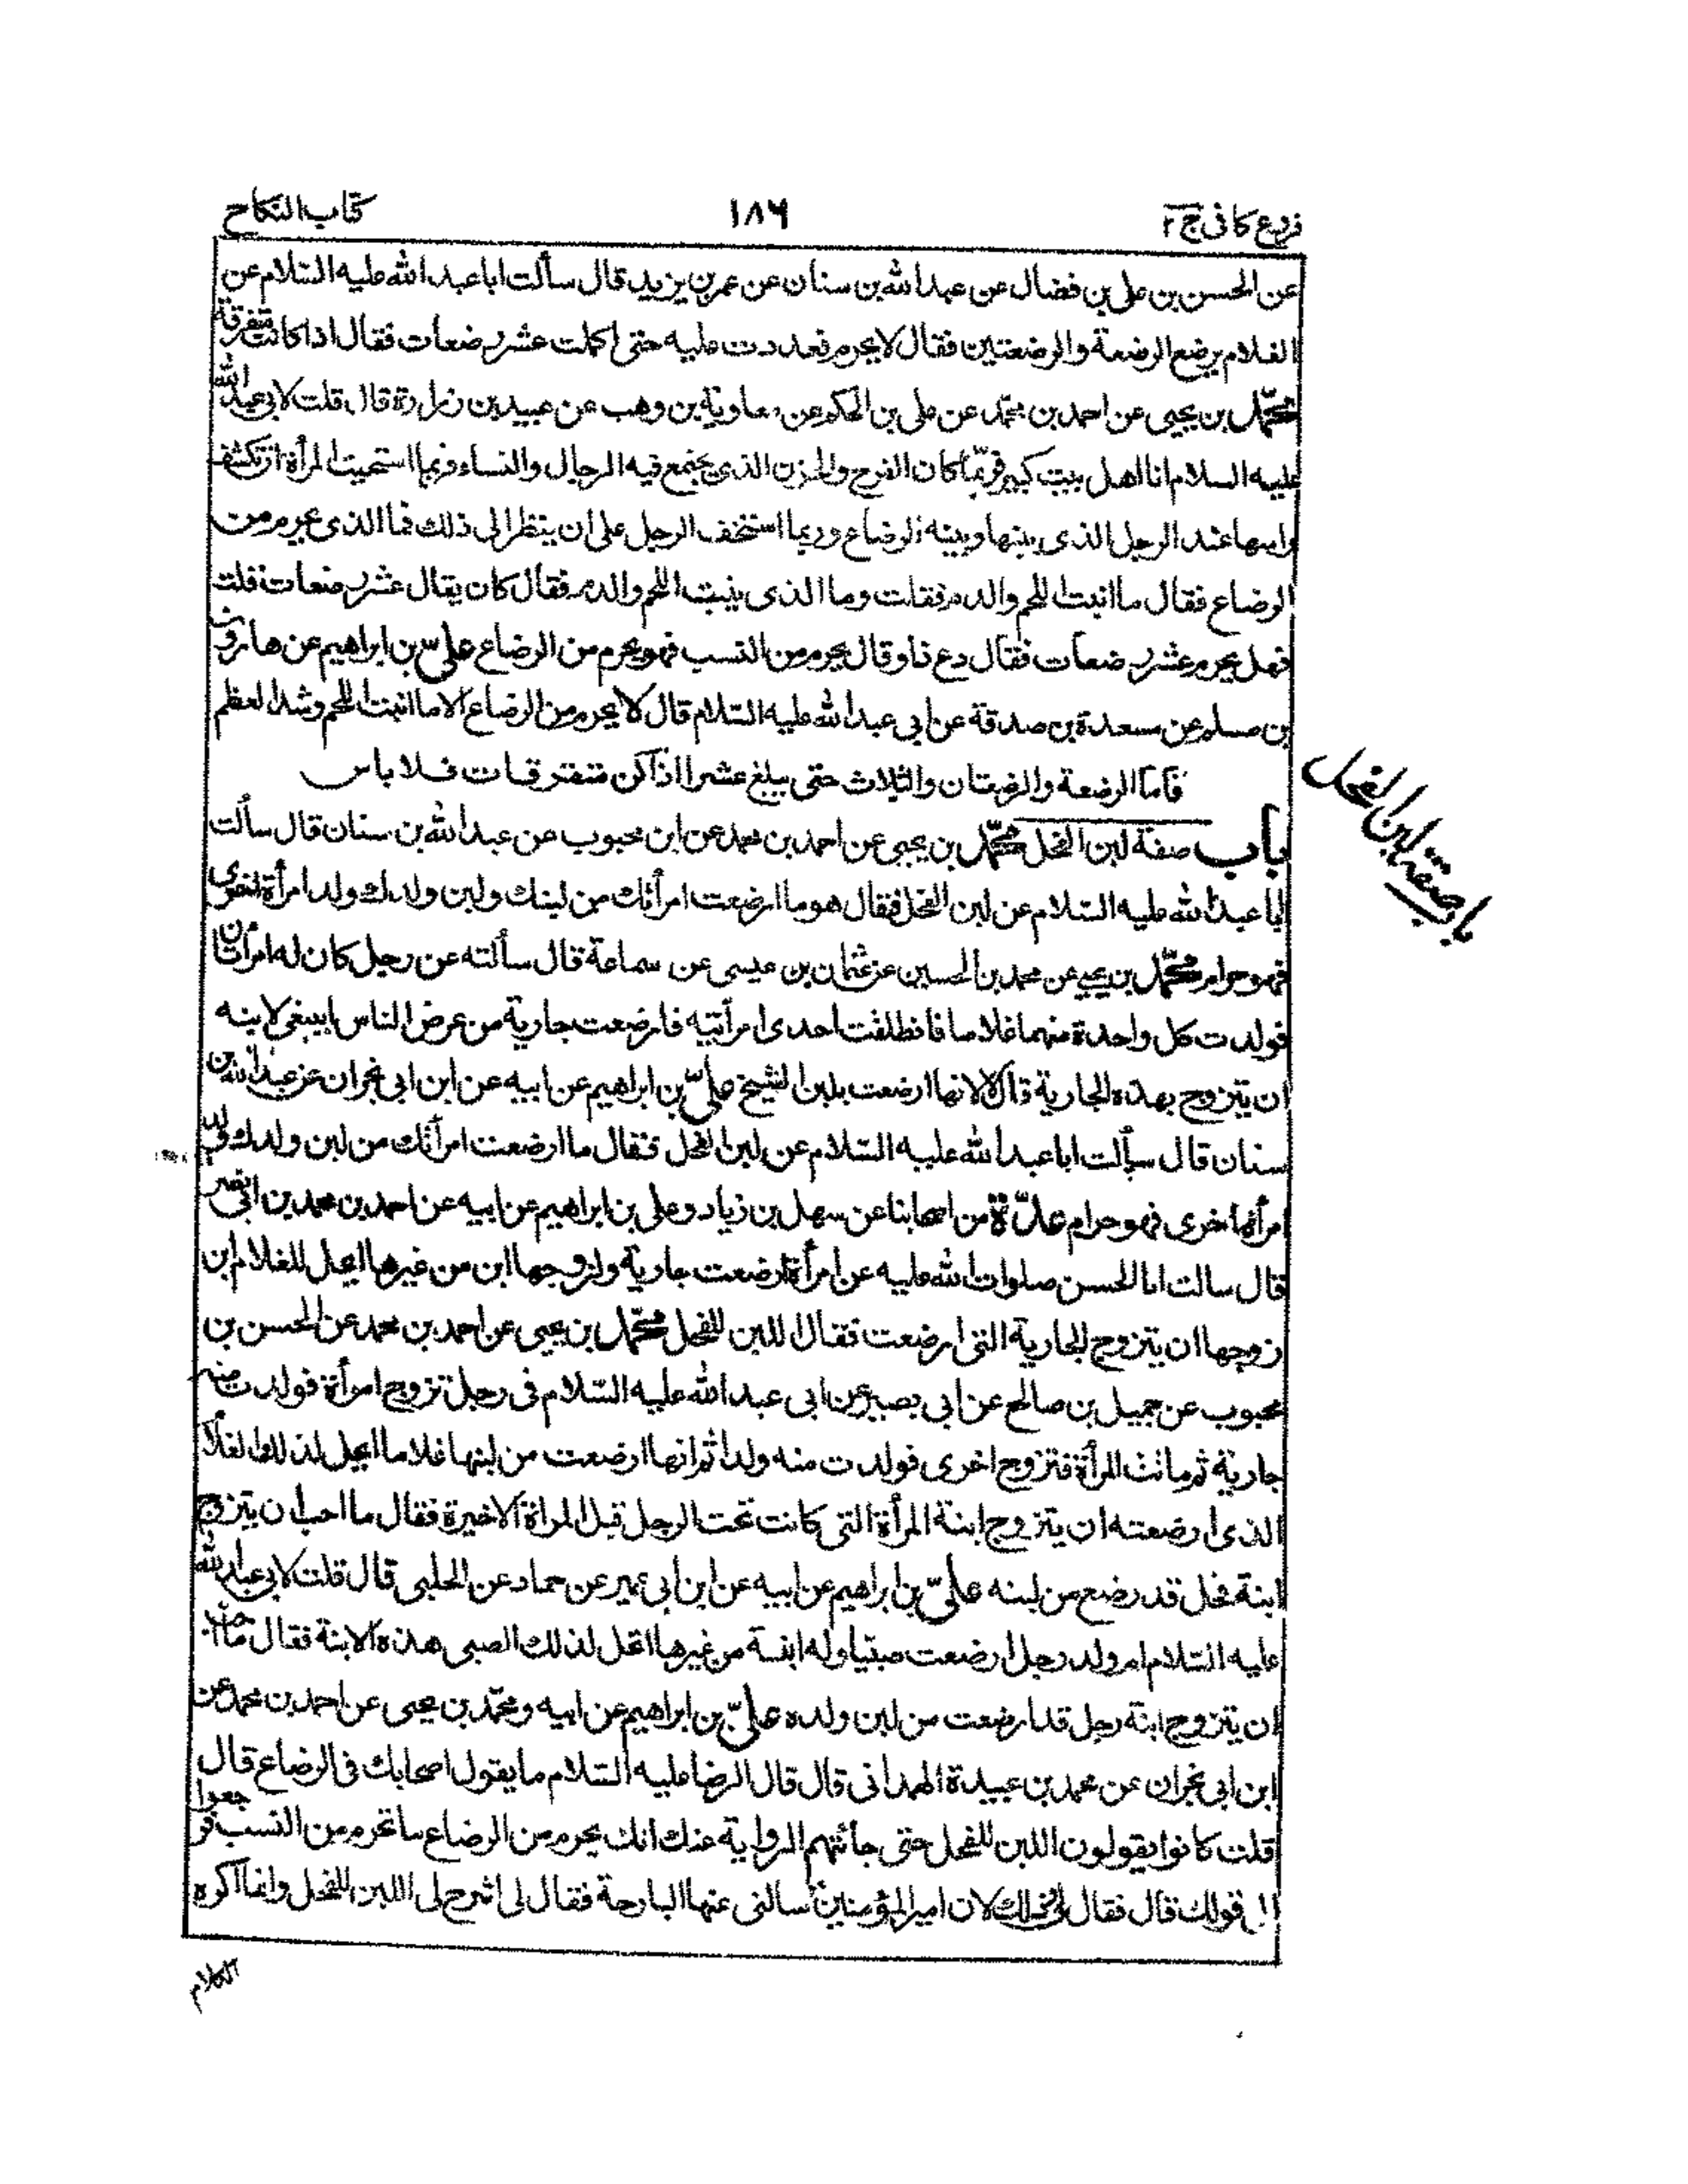 فروع كافى ج ٢
١٨٦
كتاب النكاح
عن الحسن بن على بن فضال عن عبد الله بن سنان عن عمر بن يزيد قال سألت ابا عبد الله عليه السلام عن
الغلام يرضع الرضعة والرضعتين فقال لا يحرم فعددت عليه حتى اكملت عشر رضعات فقال اذا كانت متفرقة
محمد بن يحيى عن احمد بن محمد عن على بن الحكم عن معاوية بن وهب عن عبيد بن زرارة قال قلت لابى عبد الله
عليه السلام انا اهل بيت كبير فربما كان الفرح والحزن الذى يجتمع فيه الرجال والنساء فربما استحيت المرأة ان تكشف
راسها عند الرجل الذى بينها وبينه الرضاع وربما استخف الرجل على ان ينظر الى ذلك فما الذى يحرم من
الرضاع فقال ما انبت اللحم والدم فقلت وما الذى ينبت اللحم والدم فقال كان يقال عشر رضعات قلت
فهل يحرم عشر رضعات فقال دع ذا وقال يحرم من النسب فهو يحرم من الرضاع على بن ابراهيم عن هارون
بن مسلم عن مسعدة بن صدقة عن ابى عبد الله عليه السلام قال لا يحرم من الرضاع الا ما انبت اللحم وشد العظم
فاما الرضعة والرضعتان والثلاث حتى يبلغ عشرا اذا كن متفرقات فلا باس
باب صفة لبن الفحل
باب صفة لبن الفحل محمد بن يحيى عن احمد بن محمد عن ابن محبوب عن عبد الله بن سنان قال سألت
ابا عبد الله عليه السلام عن لبن الفحل فقال هو ما ارضعت امرأتك من لبنك ولبن ولدك ولد امرأة اخرى
فهو حرام محمد بن يحيى عن محمد بن الحسين عن عثمان بن عيسى عن سماعة قال سألته عن رجل كان له امرأتان
فولدت كل واحدة منهما غلاما فانطلقت احدى امرأتيه فارضعت جارية من عرض الناس اينبغى لابنه
ان يتزوج بهذه الجارية قال لا لانها ارضعت بلبن الشيخ على بن ابراهيم عن ابيه عن ابن ابى نجران عن عبد الله بن
سنان قال سألت ابا عبد الله عليه السلام عن لبن الفحل فقال ما ارضعت امرأتك من لبن ولدك ولد
امرأة اخرى فهو حرام عدة من اصحابنا عن سهل بن زياد وعلى بن ابراهيم عن ابيه عن احمد بن محمد بن ابى نصر
قال سالت ابا الحسن صلوات الله عليه عن امرأة ارضعت جارية ولزوجها ابن من غيرها ايحل للغلام ابن
زوجها ان يتزوج الجارية التى ارضعت فقال اللبن للفحل محمد بن يحيى عن احمد بن محمد عن الحسن بن
محبوب عن جميل بن صالح عن ابى بصير عن ابى عبد الله عليه السلام فى رجل تزوج امرأة فولدت منه
جارية ثم ماتت المرأة فتزوج اخرى فولدت منه ولدا ثم انها ارضعت من لبنها غلاما ايحل لذلك الغلام
الذى ارضعته ان يتزوج ابنة المرأة التى كانت تحت الرجل قبل المراة الاخيرة فقال ما احب ان يتزوج
ابنة فحل قد رضع من لبنه على بن ابراهيم عن ابيه عن ابن ابى عمير عن حماد عن الحلبى قال قلت لابى عبد الله
عليه السلام ام ولد رجل ارضعت صبيا وله ابنة من غيرها اتحل لذلك الصبى هذه الابنة فقال ما احب
ان يتزوج ابنة رجل قد ارضعت من لبن ولده على بن ابراهيم عن ابيه ومحمد بن يحيى عن احمد بن محمد عن
ابن ابى نجران عن محمد بن عبيدة الهمدانى قال قال الرضا عليه السلام ما يقول اصحابك فى الرضاع قال
قلت كانوا يقولون اللبن للفحل حتى جائتهم الرواية عنك انك يحرم من الرضاع ما تحرم من النسب فرجعوا
الى قولك قال فقال لى وذلك لان امير المؤمنين سالنى عنها البارحة فقال لى اشرح لى اللبن للفحل وانا اكره
الكلام